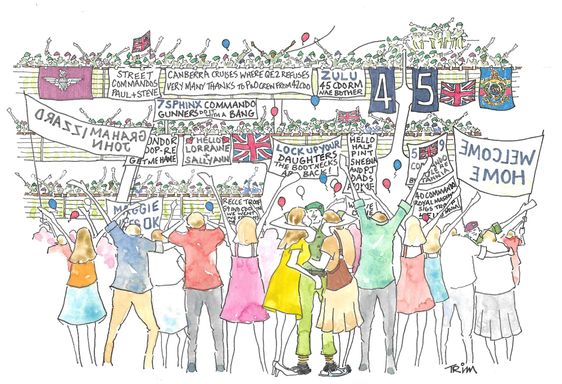 STREET
COMMANDOS
PAUL + STEVE
CANBERRA CRUISES WHERE QE2 REFUSES
VERY MANY THANKS TO P&O CREW FROM 42 CDO
ZULU
45 CDORM
NAE BOTHER
45
7 SPHINX COMMANDO
GUNNERS DO IT IN A BANG
GRAHAM IZZARD
JOHN
HELLO
LORRAINE
SALLYANN
LOCK UP YOUR
DAUGHTERS
THE BOOTNECKS
ARE BACK
HELLO
HALF
PINT
SHEENA
AND PJ
DADS
HOME
WELCOME
HOME
MAGGIE
OK
COMMANDO
ROYAL MARINES
SIGS TROOP
TRIM